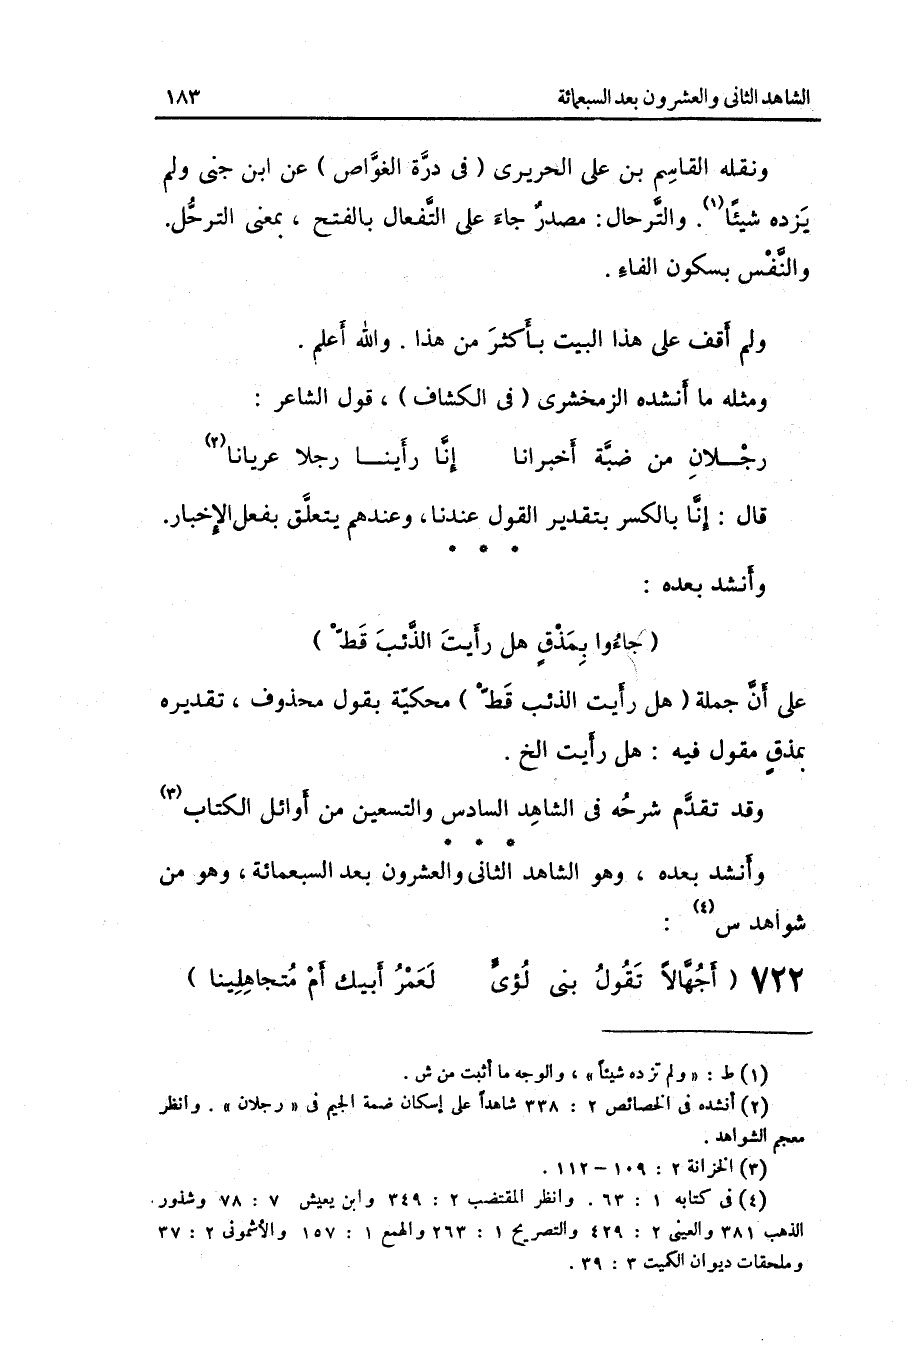 الشاهد الثانى والعشرون بعد السبعمائة ١٨٣
ونقله القاسِم بن على الحريرى ( فى درَّة الغوَّاص ) عن ابن جنى ولم
يَزده شيئًا(١). والتَّرحال: مصدرٌ جاءَ على التَّفعال بالفتح ، بمعنى الترحُّل.
والنَّفْس بسكون الفاءِ .
ولم أَقف على هذا البيت بأَكثرَ من هذا . والله أَعلم .
ومثله ما أَنشده الزمخشرى ( فى الكشاف ) ، قول الشاعر :
رجْـــلانِ من ضبَّة أَخبرانا إنَّا رأَينـــا رجلا عريانا(٢)
قال : إنَّا بالكسر بتقدير القول عندنا، وعندهم يتعلَّق بفعل الإِخبار.
* * *
وأَنشد بعده :
( جاءُوا بِمَذْقٍ هل رأَيتَ الذِّئبَ قَطّْ )
على أَنَّ جملة ( هل رأَيت الذئب قَطّْ ) محكيّة بقول محذوف ، تقديره
بمذقٍ مقول فيه : هل رأَيت الخ .
وقد تقدَّم شرحُه فى الشاهِد السادس والتسعين من أَوائل الكتاب(٣)
* * *
وأَنشد بعده ، وهو الشاهد الثانى والعشرون بعد السبعمائة ، وهو من
شواهد س(٤) :
٧٢٢ ( أَجُهَّالاً تَقُولُ بنى لُؤىٍّ لَعَمْرُ أَبيك أَمْ مُتجاهِلِينا )
(١) ط : « ولم تزده شيئاً » ، والوجه ما أثبت من ش .
(٢) أنشده فى الخصائص ٢ : ٣٣٨ شاهداً على إسكان ضمة الجيم فى « رجلان » . وانظر
معجم الشواهد .
(٣) الخزانة ٢ : ١٠٩ – ١١٢ .
(٤) فى كتابه ١ : ٦٣ . وانظر المقتضب ٢ : ٣٤٩ وابن يعيش ٧ : ٧٨ وشذور
الذهب ٣٨١ والعينى ٢ : ٤٢٩ والتصريح ١ : ٢٦٣ والهمع ١ : ١٥٧ والأشمونى ٢ : ٣٧
وملحقات ديوان الكميت ٣ : ٣٩ .